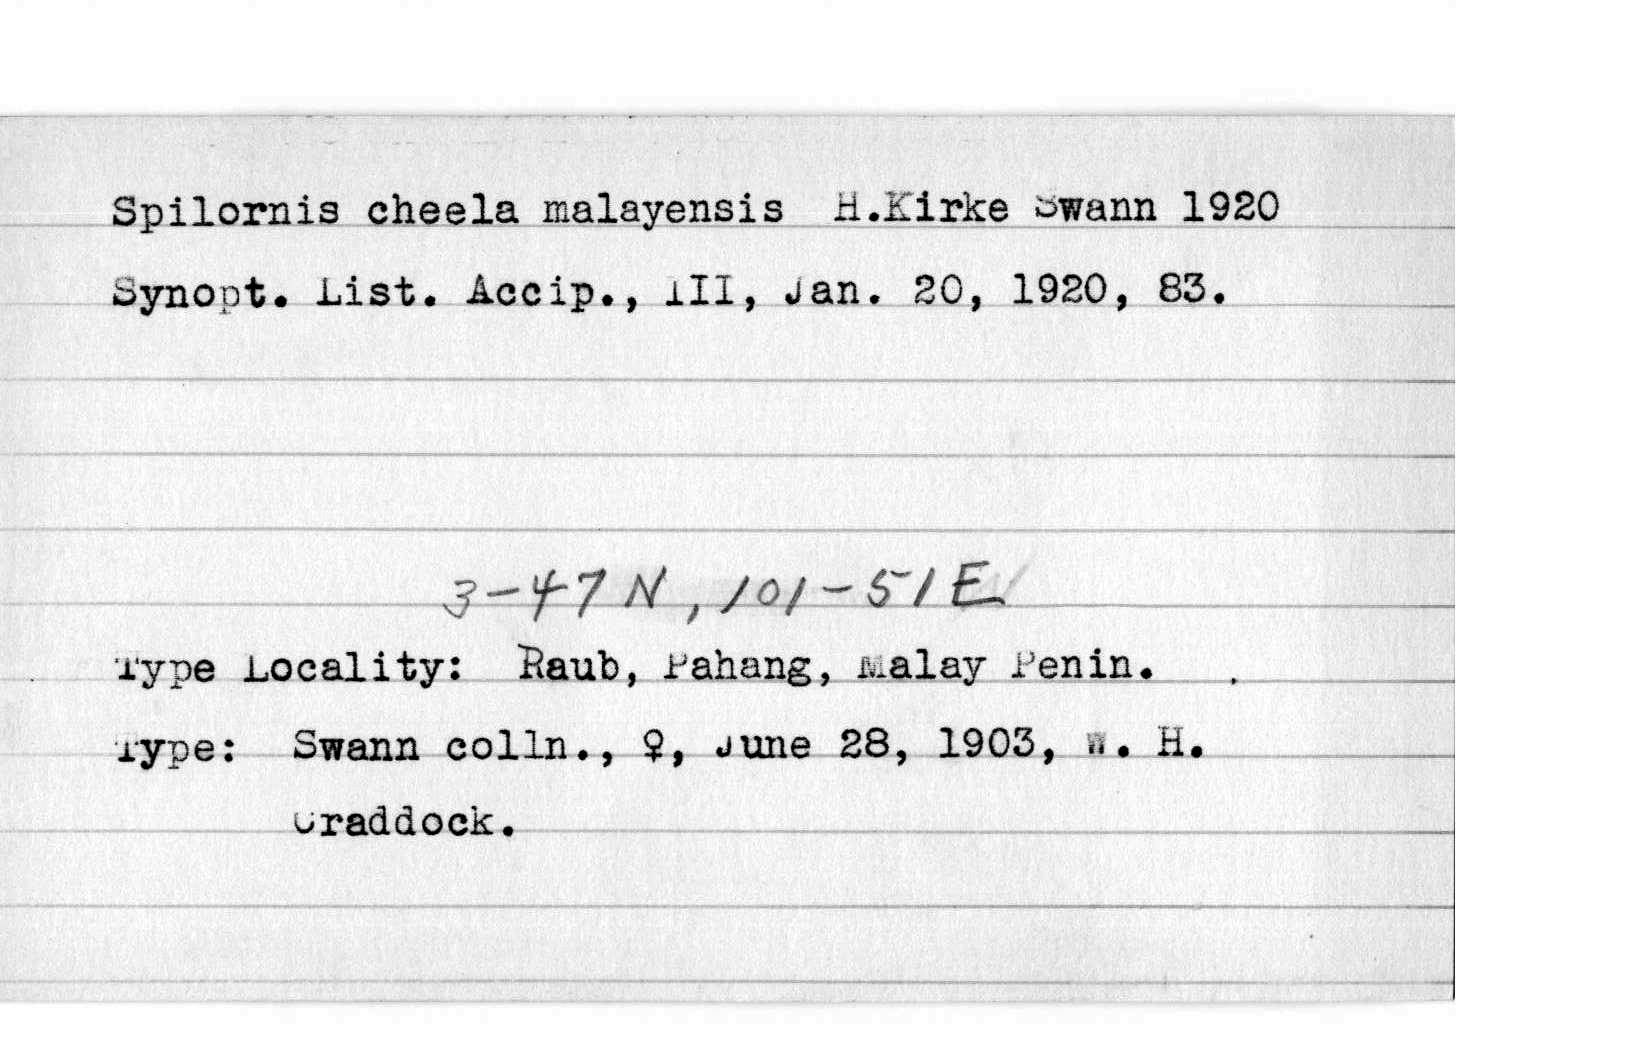 Spilornis cheela malayensis H.Kirke Swann 1920
Synopt. List. Accip., III, Jan. 20, 1920, 83.
3-47 N, 101-51 E
Type Locality: Raub, Pahang, Malay Penin.
Type: Swann colln., ♀, June 28, 1903, W. H.
Craddock.